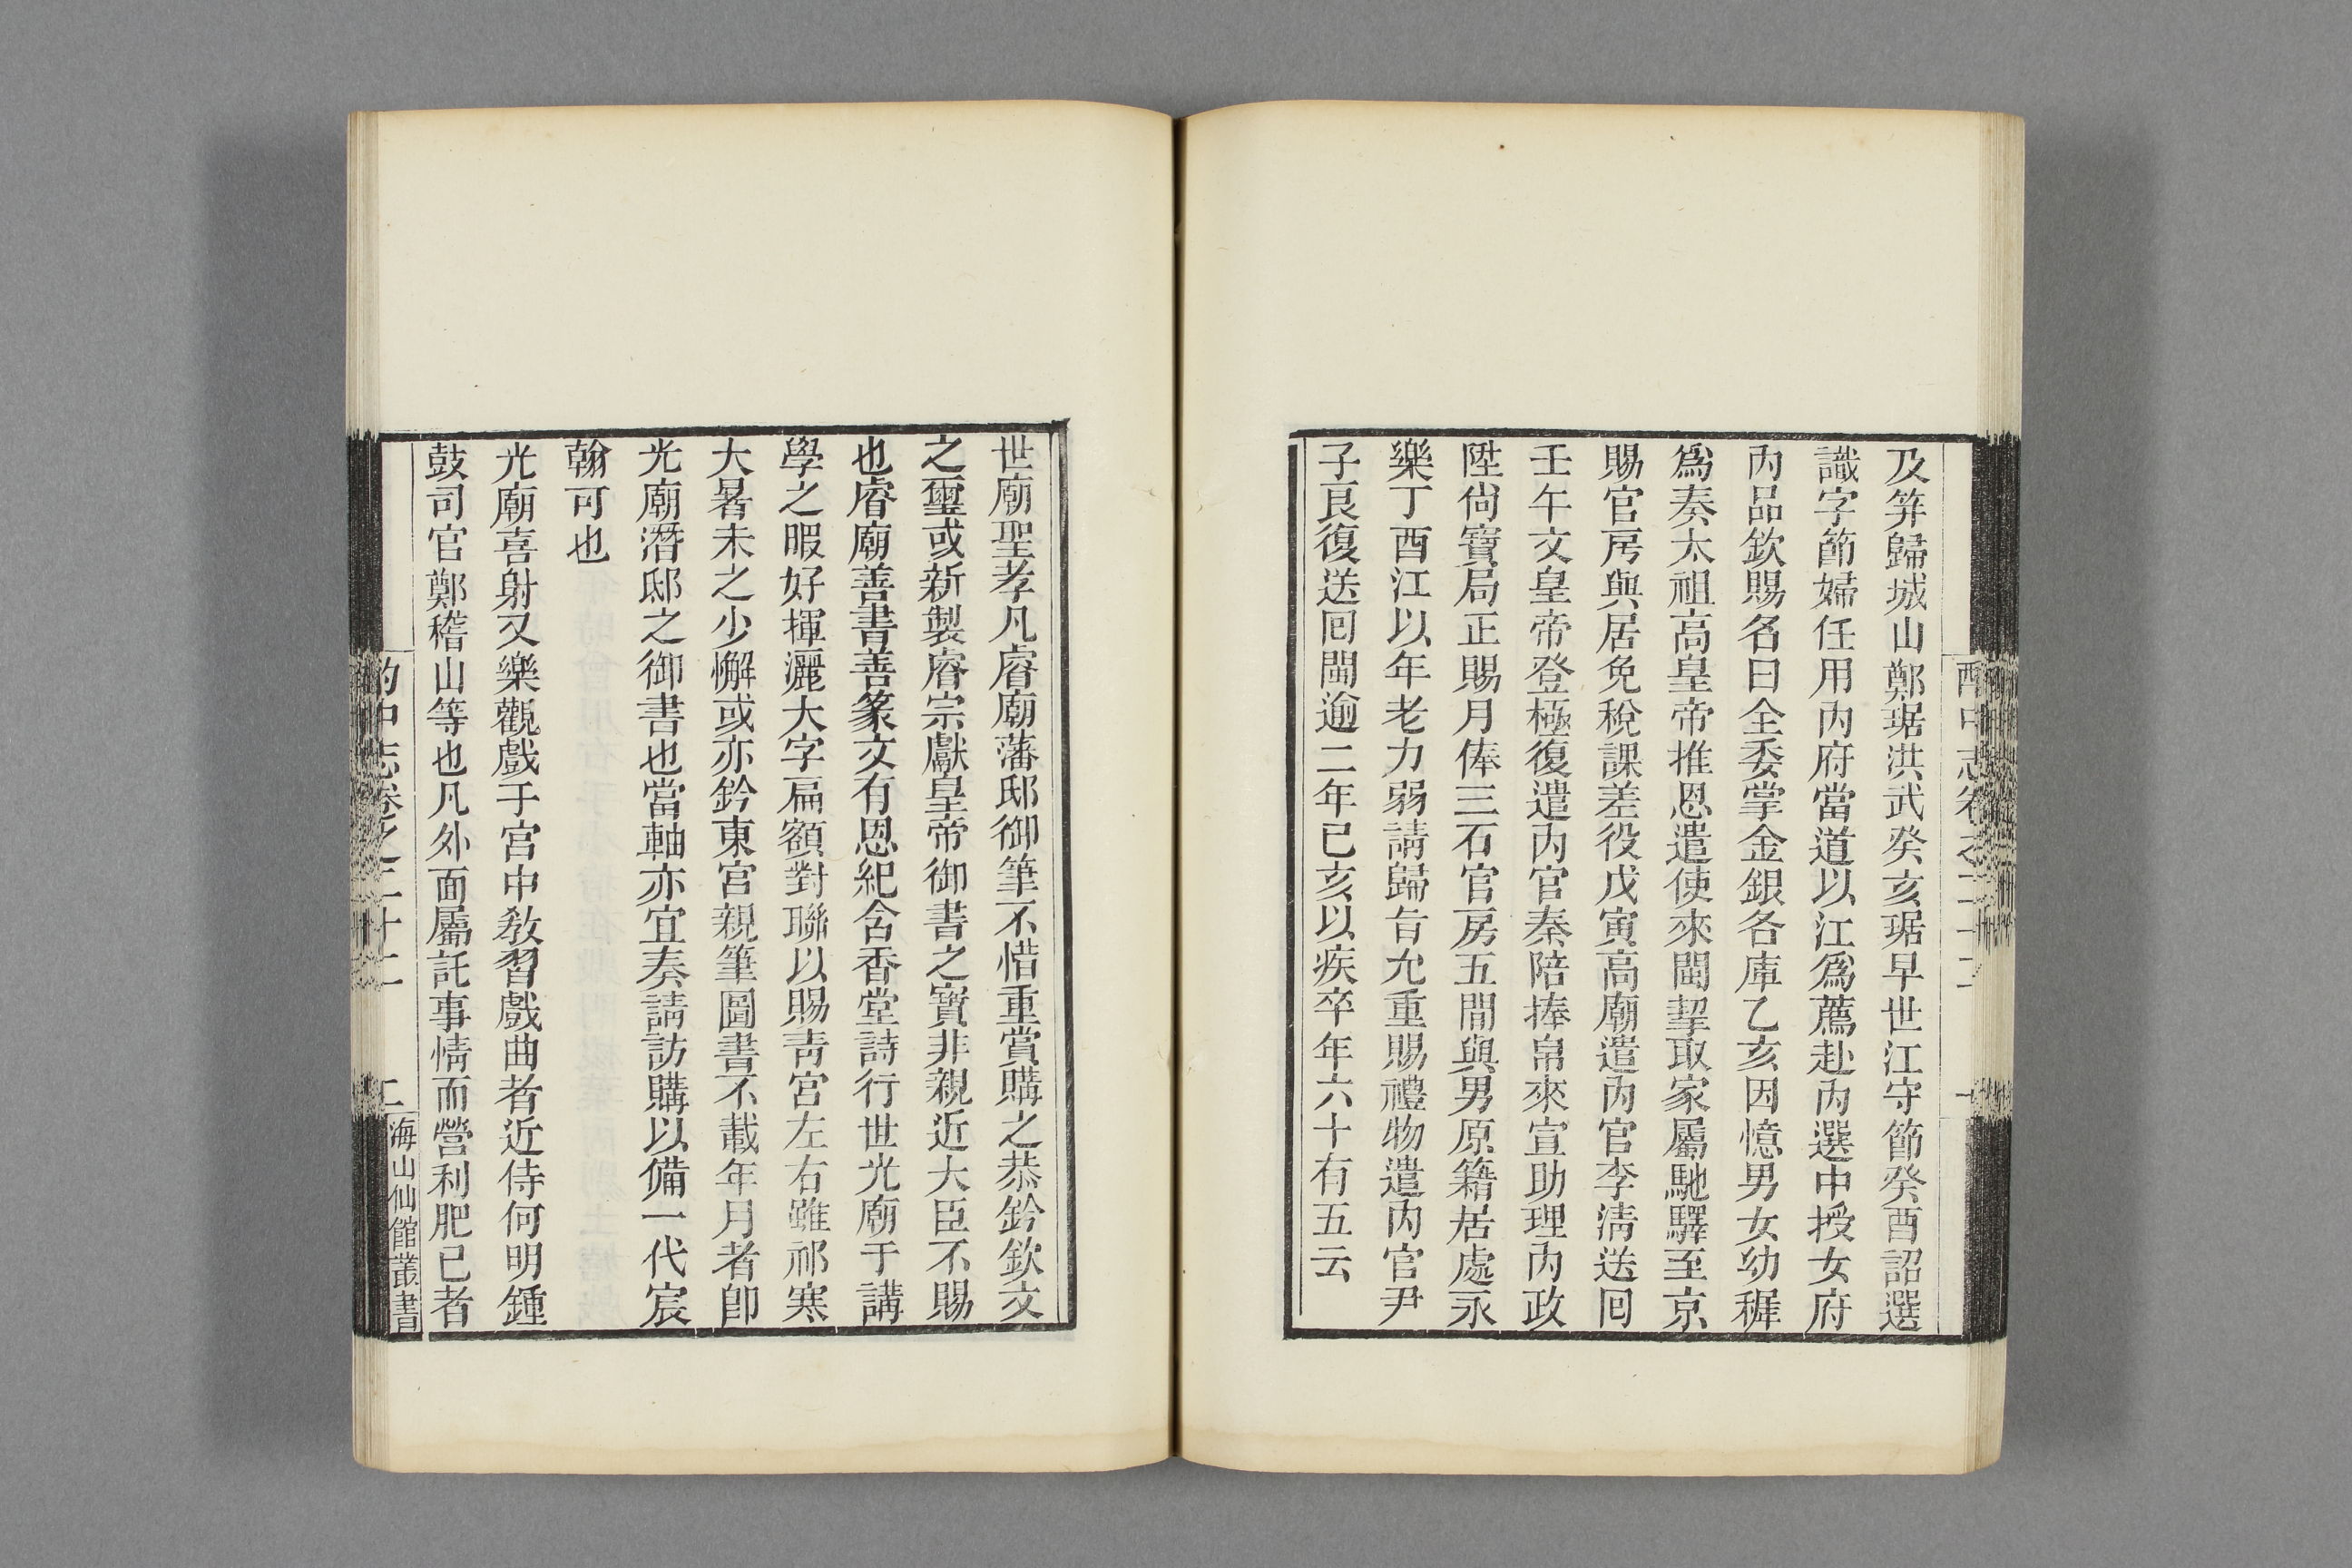 及筓歸城山鄭琚洪武癸亥琚早世江守節癸酉詔選
識字節婦任用內府當道以江爲薦赴內選中授女府
內品欽賜名曰全委掌金銀各庫乙亥因憶男女幼穉
爲奏太祖高皇帝推恩遣使來閩挈取家屬馳驛至京
賜官房與居免稅課差役戊寅高廟遣內官李淸送回
壬午文皇帝登極復遣內官秦陪捧帛來宣助理內政
陞尙寶局正賜月俸三石官房五間與男原籍居處永
樂丁酉江以年老力弱請歸旨允重賜禮物遣內官尹
子良復送回閩逾二年己亥以疾卒年六十有五云
世廟聖孝凡睿廟藩邸御筆不惜重賞購之恭鈐欽文
之璽或新製睿宗獻皇帝御書之寶非親近大臣不賜
也睿廟善書善篆文有恩紀含香堂詩行世光廟于講
學之暇好揮灑大字扁額對聯以賜靑宮左右雖祁寒
大暑未之少懈或亦鈐東宮親筆圖書不載年月者卽
光廟潛邸之御書也當軸亦宜奏請訪購以備一代宸
翰可也
光廟喜射又樂觀戲于宮中敎習戲曲者近侍何明鍾
鼓司官鄭稽山等也凡外面屬託事情而營利肥己者
酌中志卷之二十二
二
海山仙館叢書